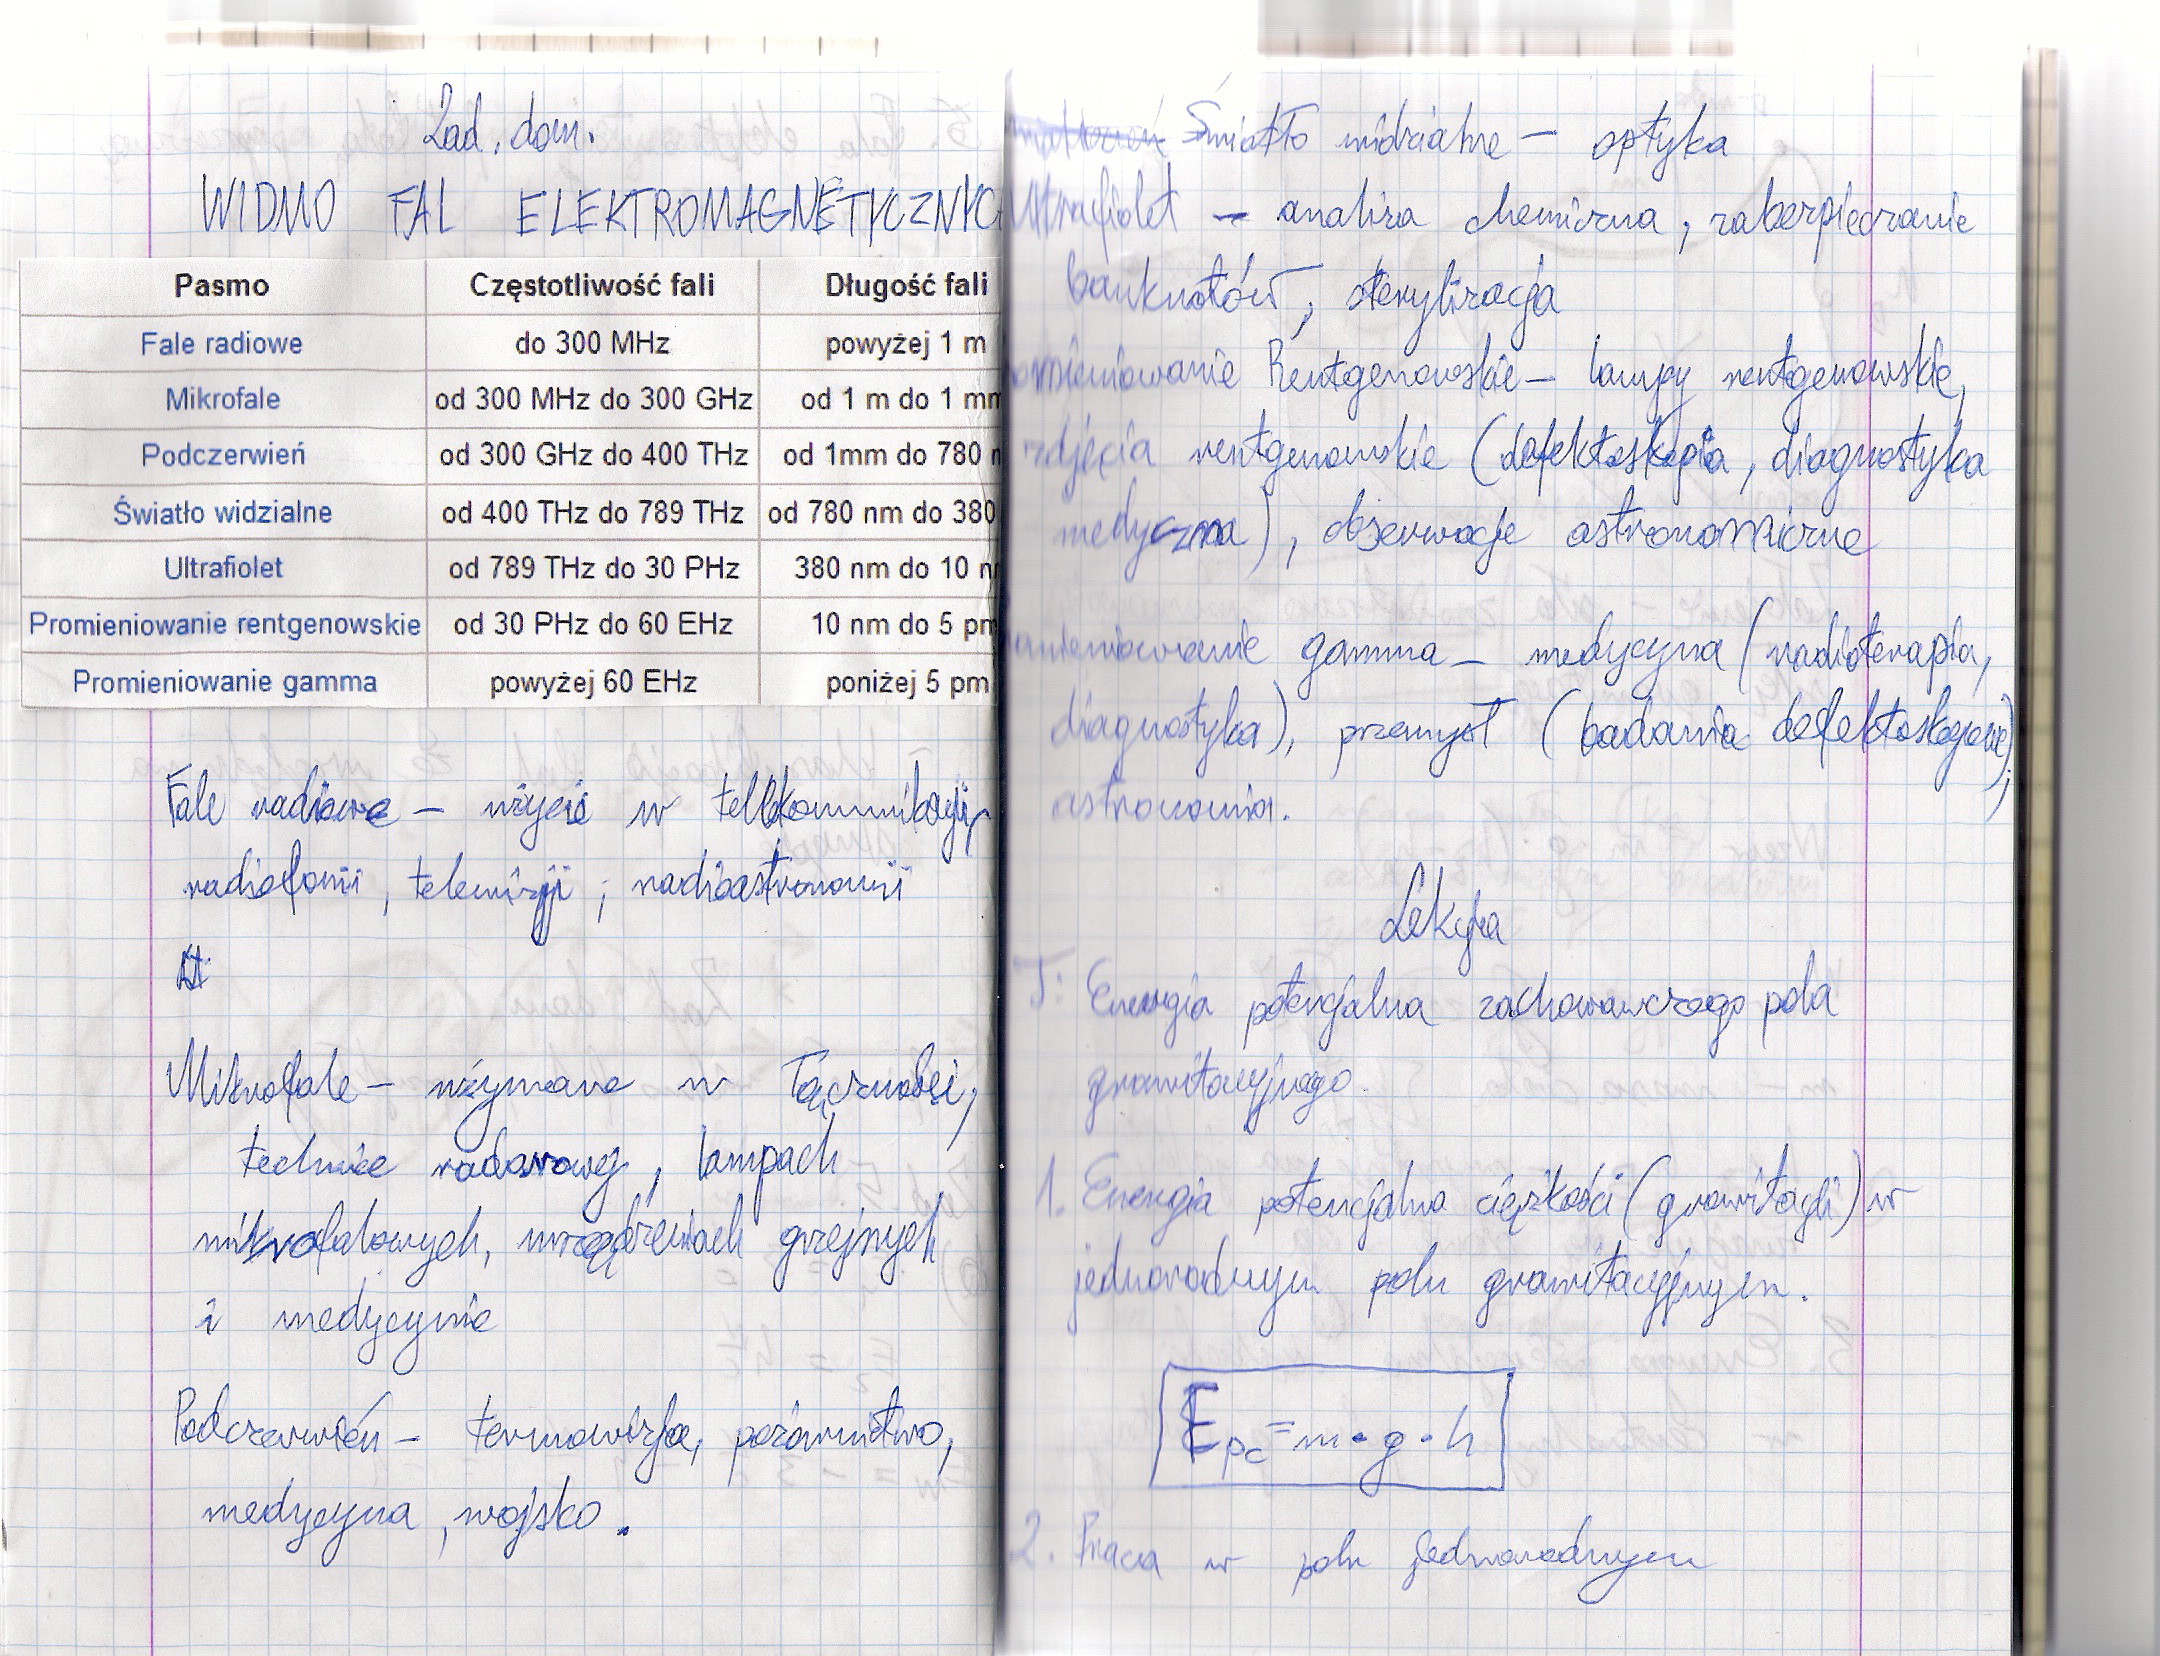 Zad. dom.
WIDMO FAL ELEKTROMAGNETYCZNYC
Pasmo Częstotliwość fali Długość fali
Fale radiowe do 300 MHz powyżej 1 m
Mikrofale od 300 MHz do 300 GHz od 1 m do 1 mm
Podczerwień od 300 GHz do 400 THz od 1mm do 780 n
Światło widzialne od 400 THz do 789 THz od 780 nm do 380
Ultrafiolet od 789 THz do 30 PHz 380 nm do 10 n
Promieniowanie rentgenowskie od 30 PHz do 60 EHz 10 nm do 5 pm
Promieniowanie gamma powyżej 60 EHz poniżej 5 pm
Fale radiowe – użycie w telekomunikacji,
radiofonii, telewizji, radioastronomii
Mikrofale – używane w łączności,
technice radarowej, lampach
mikrofalowych, urządzeniach grzejnych
i medycynie
Podczerwień – termowizja, pożarnictwo,
medycyna, wojsko.
Światło widzialne – optyka
Ultrafiolet – analiza chemiczna, zabezpieczanie
banknotów, sterylizacja
omieniowanie Rentgenowskie – lampy rentgenowskie,
zdjęcia rentgenowskie (defektoskopia, diagnostyka
medyczna), obserwacje astronomiczne
omieniowanie gamma – medycyna (radioterapia,
diagnostyka), przemysł (badania defektoskopowe),
astronomia.
Lekcja
T: Energia potencjalna zachowawczego pola
grawitacyjnego.
1. Energia potencjalna ciężkości (grawitacji) w
jednorodnym polu grawitacyjnym.
Epc = m · g · h
2. Praca w polu jednorodnym